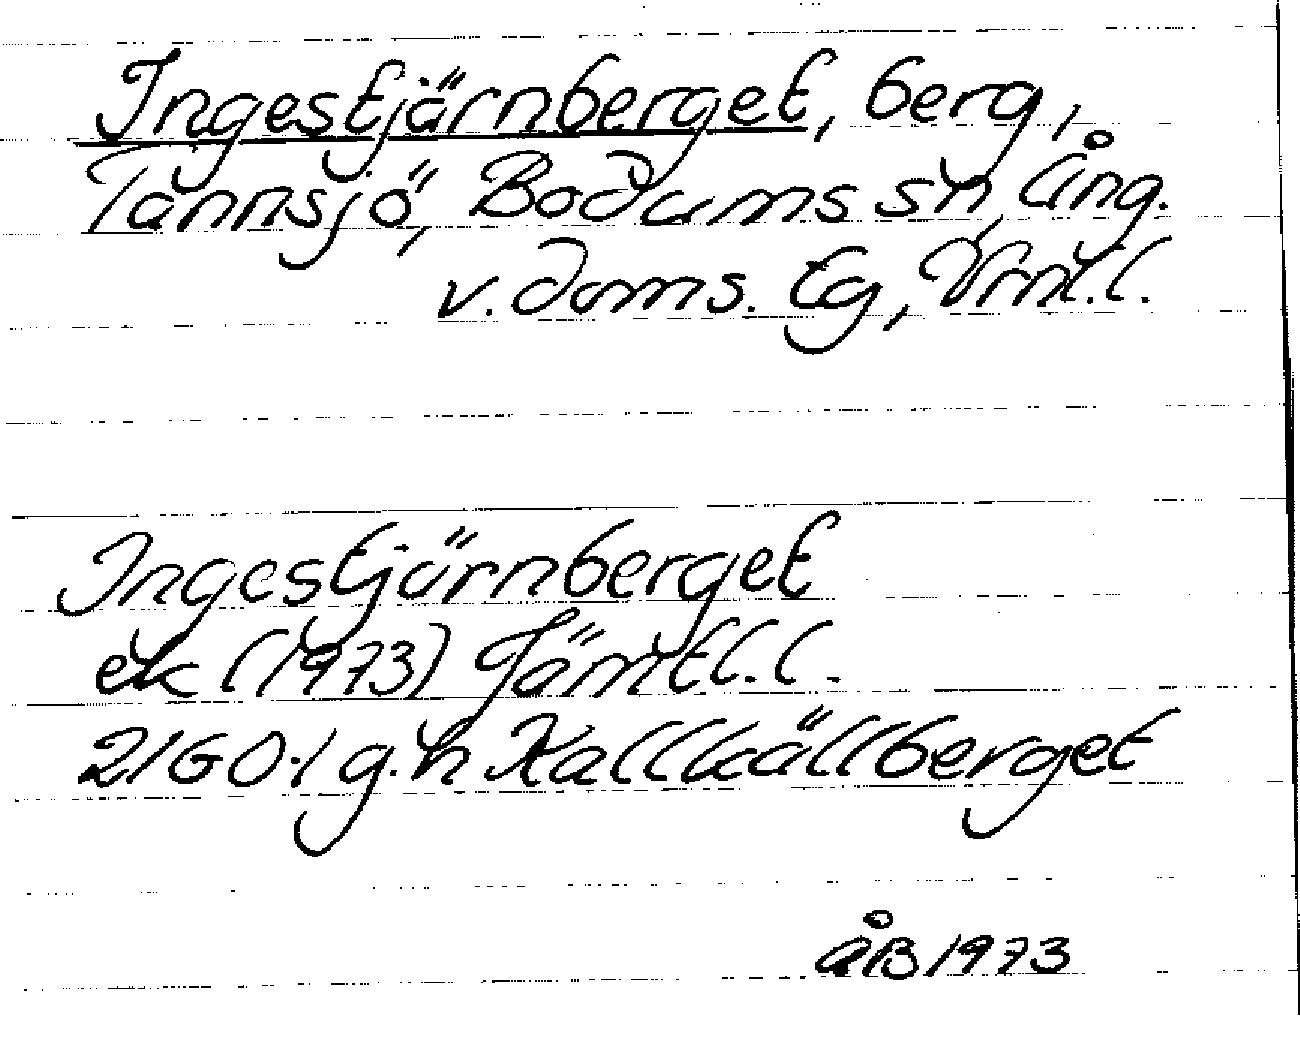 Ingestjärnberget, berg,
Tannsjö, Bodums sn, Ång.
v. doms. tg, Vrnl.l.
Ingestjärnberget
ek (1973) Jämtl.l.
21G 0·1 g.h Kallkällberget
ÅB 1973